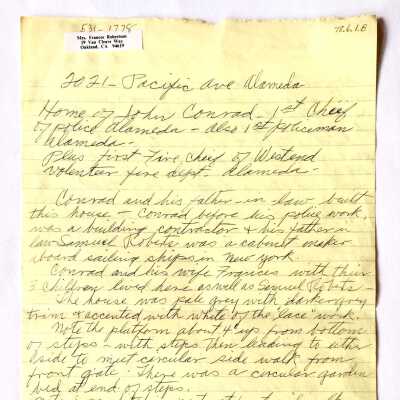 531-1778
78.6.1.B
Mrs. Frances Robertson
19 Van Cleave Way
Oakland, CA 94619
2021 - Pacific Ave Alameda
Home of John Conrad - 1st Chief
of police Alameda - also 1st policeman
Alameda -
Plus first Fire Chief of Westend
Volenteer fire dept. Alameda -
Conrad and his father-in law built
this house - Conrad before his police work,
was a building contractor & his father in
law Samuel Roberts was a cabinet maker
board sailing ships in New York.
Conrad and his wife Frances with their
3 children lived here as well as Samuel Roberts -
The house was pale grey with darker grey
trim & accented with white of the "lace" work.
Note the platform about 4' up from bottom
of steps - with steps then leading to either
side to meet circular side walk from
front gate. There was a circular garden
bed at end of steps.